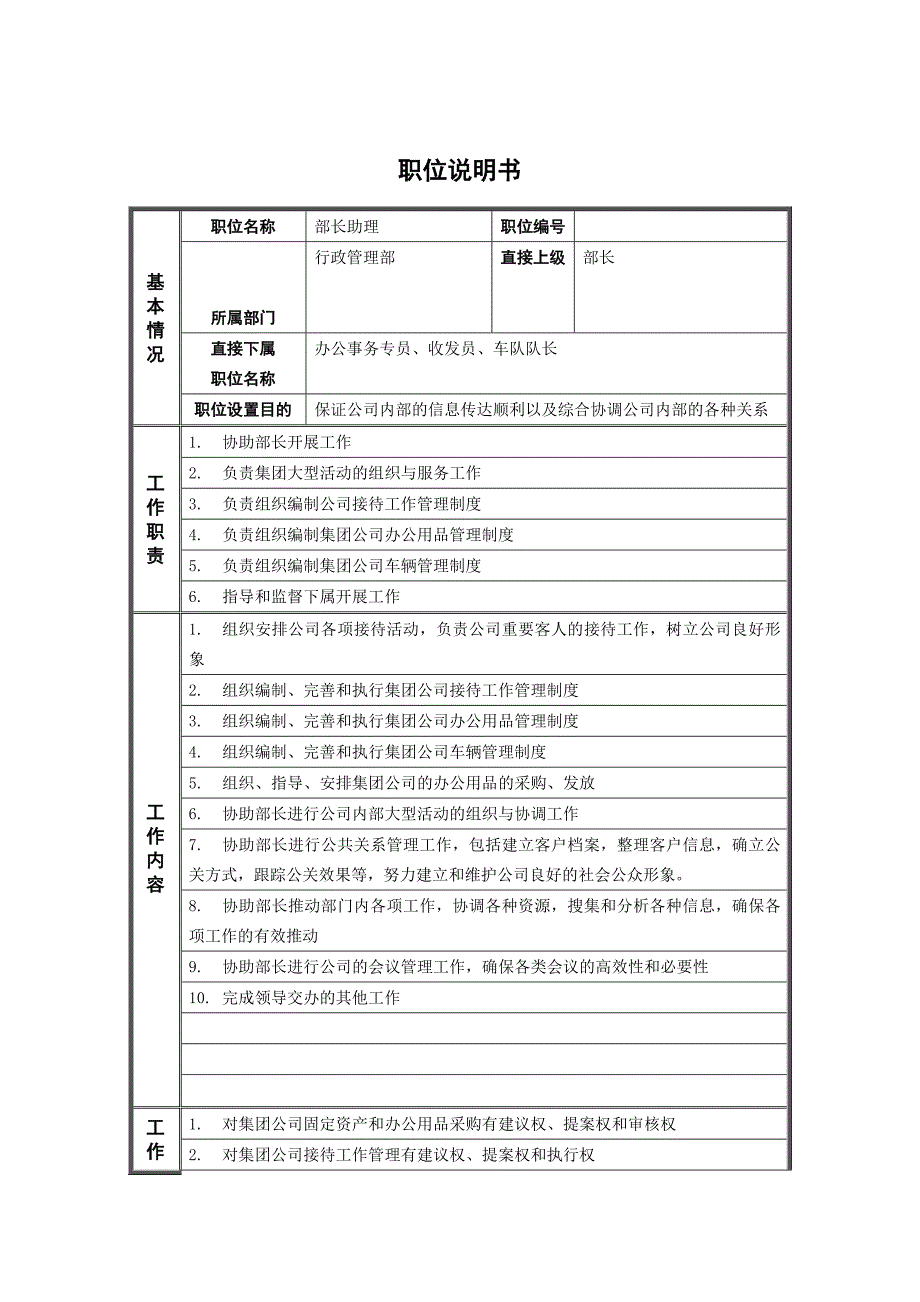 职位说明书
基本情况
职位名称 部长助理 职位编号
所属部门 行政管理部 直接上级 部长
直接下属 办公事务专员、收发员、车队队长
职位名称
职位设置目的 保证公司内部的信息传达顺利以及综合协调公司内部的各种关系
工作职责
1. 协助部长开展工作
2. 负责集团大型活动的组织与服务工作
3. 负责组织编制公司接待工作管理制度
4. 负责组织编制集团公司办公用品管理制度
5. 负责组织编制集团公司车辆管理制度
6. 指导和监督下属开展工作
工作内容
1. 组织安排公司各项接待活动，负责公司重要客人的接待工作，树立公司良好形
象
2. 组织编制、完善和执行集团公司接待工作管理制度
3. 组织编制、完善和执行集团公司办公用品管理制度
4. 组织编制、完善和执行集团公司车辆管理制度
5. 组织、指导、安排集团公司的办公用品的采购、发放
6. 协助部长进行公司内部大型活动的组织与协调工作
7. 协助部长进行公共关系管理工作，包括建立客户档案，整理客户信息，确立公
关方式，跟踪公关效果等，努力建立和维护公司良好的社会公众形象。
8. 协助部长推动部门内各项工作，协调各种资源，搜集和分析各种信息，确保各
项工作的有效推动
9. 协助部长进行公司的会议管理工作，确保各类会议的高效性和必要性
10. 完成领导交办的其他工作
工作
1. 对集团公司固定资产和办公用品采购有建议权、提案权和审核权
2. 对集团公司接待工作管理有建议权、提案权和执行权